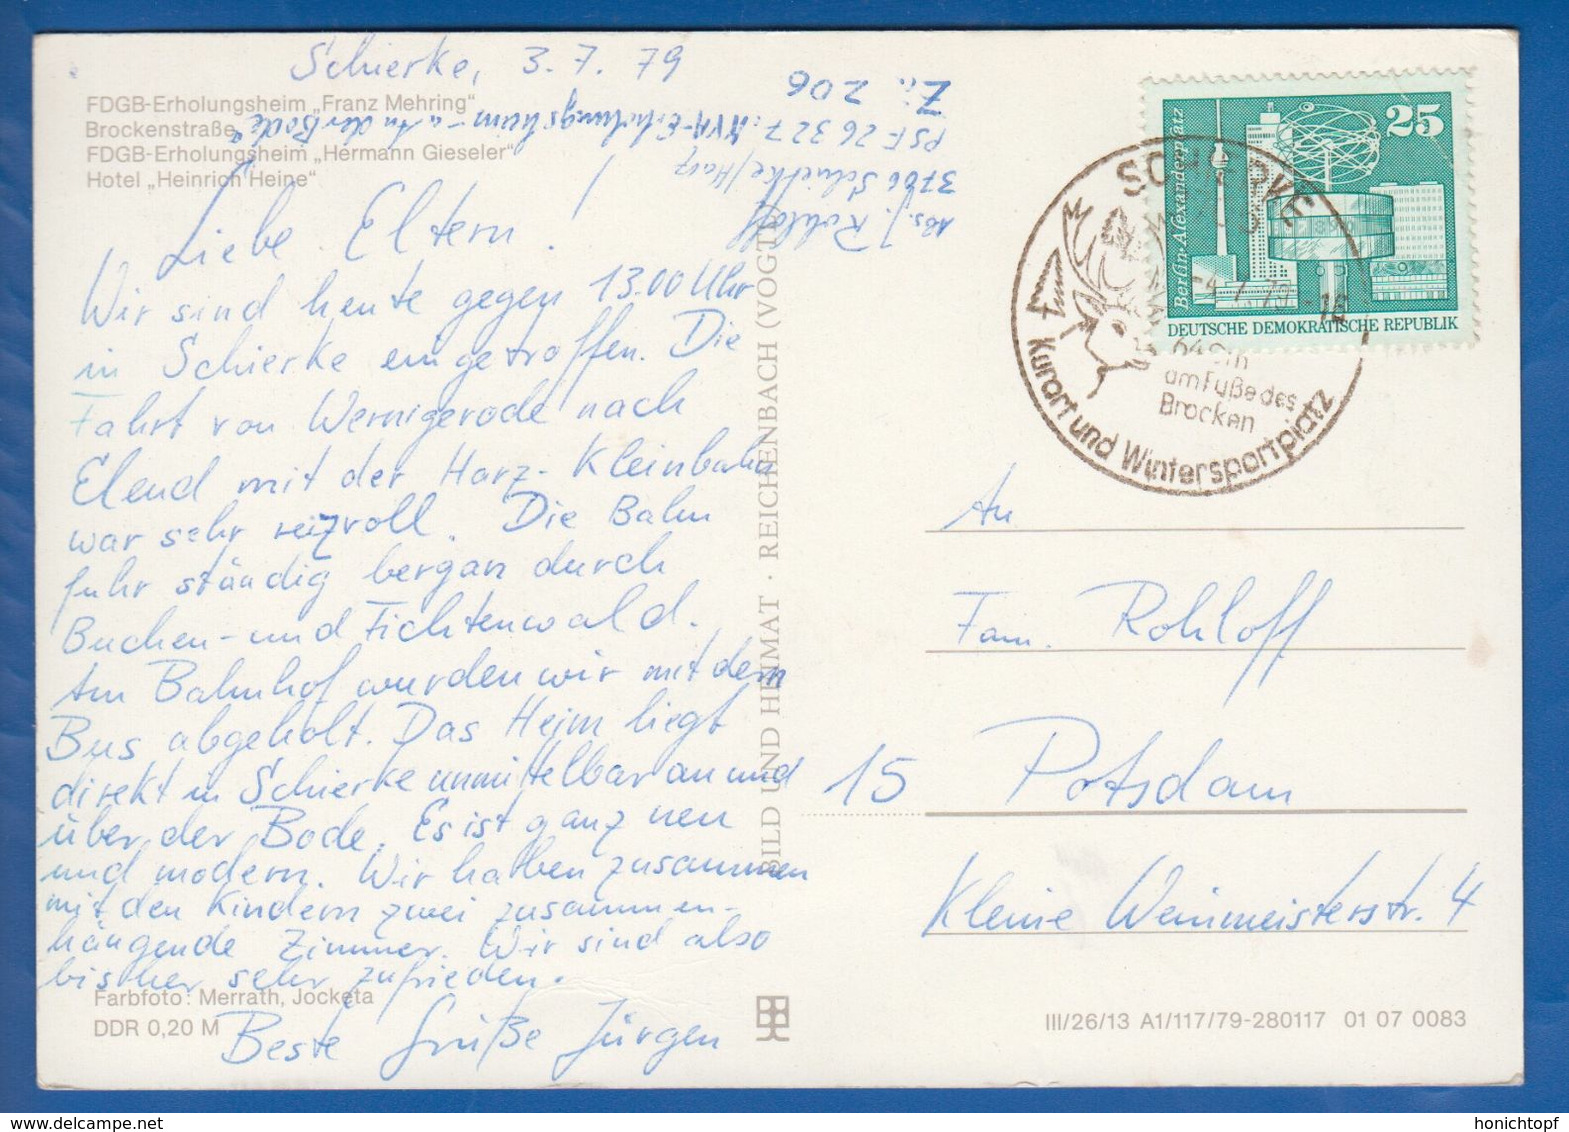 Schierke, 3.7.79
FDGB-Erholungsheim „Franz Mehring"
Brockenstraße
FDGB-Erholungsheim „Hermann Gieseler"
Hotel „Heinrich Heine"
Abs. J. Rohloff
3706 Schierke/Harz
PSF 26327: NVA-Erholungsheim „An der Bode"
Zi. 206
Liebe Eltern!
Wir sind heute gegen 13.00 Uhr
in Schierke eingetroffen. Die
Fahrt von Wernigerode nach
Elend mit der Harz-Kleinbahn
war sehr reizvoll. Die Bahn
fuhr ständig bergan durch
Buchen- und Fichtenwald.
Am Bahnhof wurden wir mit dem
Bus abgeholt. Das Heim liegt
direkt in Schierke unmittelbar an und
über der Bode. Es ist ganz neu
und modern. Wir haben zusammen
mit den Kindern zwei zusammen-
hängende Zimmer. Wir sind also
bisher sehr zufrieden.
Beste Grüße Jürgen
Farbfoto: Merrath, Jocketa
DDR 0,20 M
BILD UND HEIMAT · REICHENBACH (VOGTL)
Berlin-Alexanderplatz
25
DEUTSCHE DEMOKRATISCHE REPUBLIK
SCHIERKE
-4.7.79-16
am Fuße des
Brocken
Kurort und Wintersportplatz
An
Fam. Rohloff
15 Potsdam
Kleine Weinmeisterstr. 4
III/26/13 A1/117/79-280117 01 07 0083
honichtopf